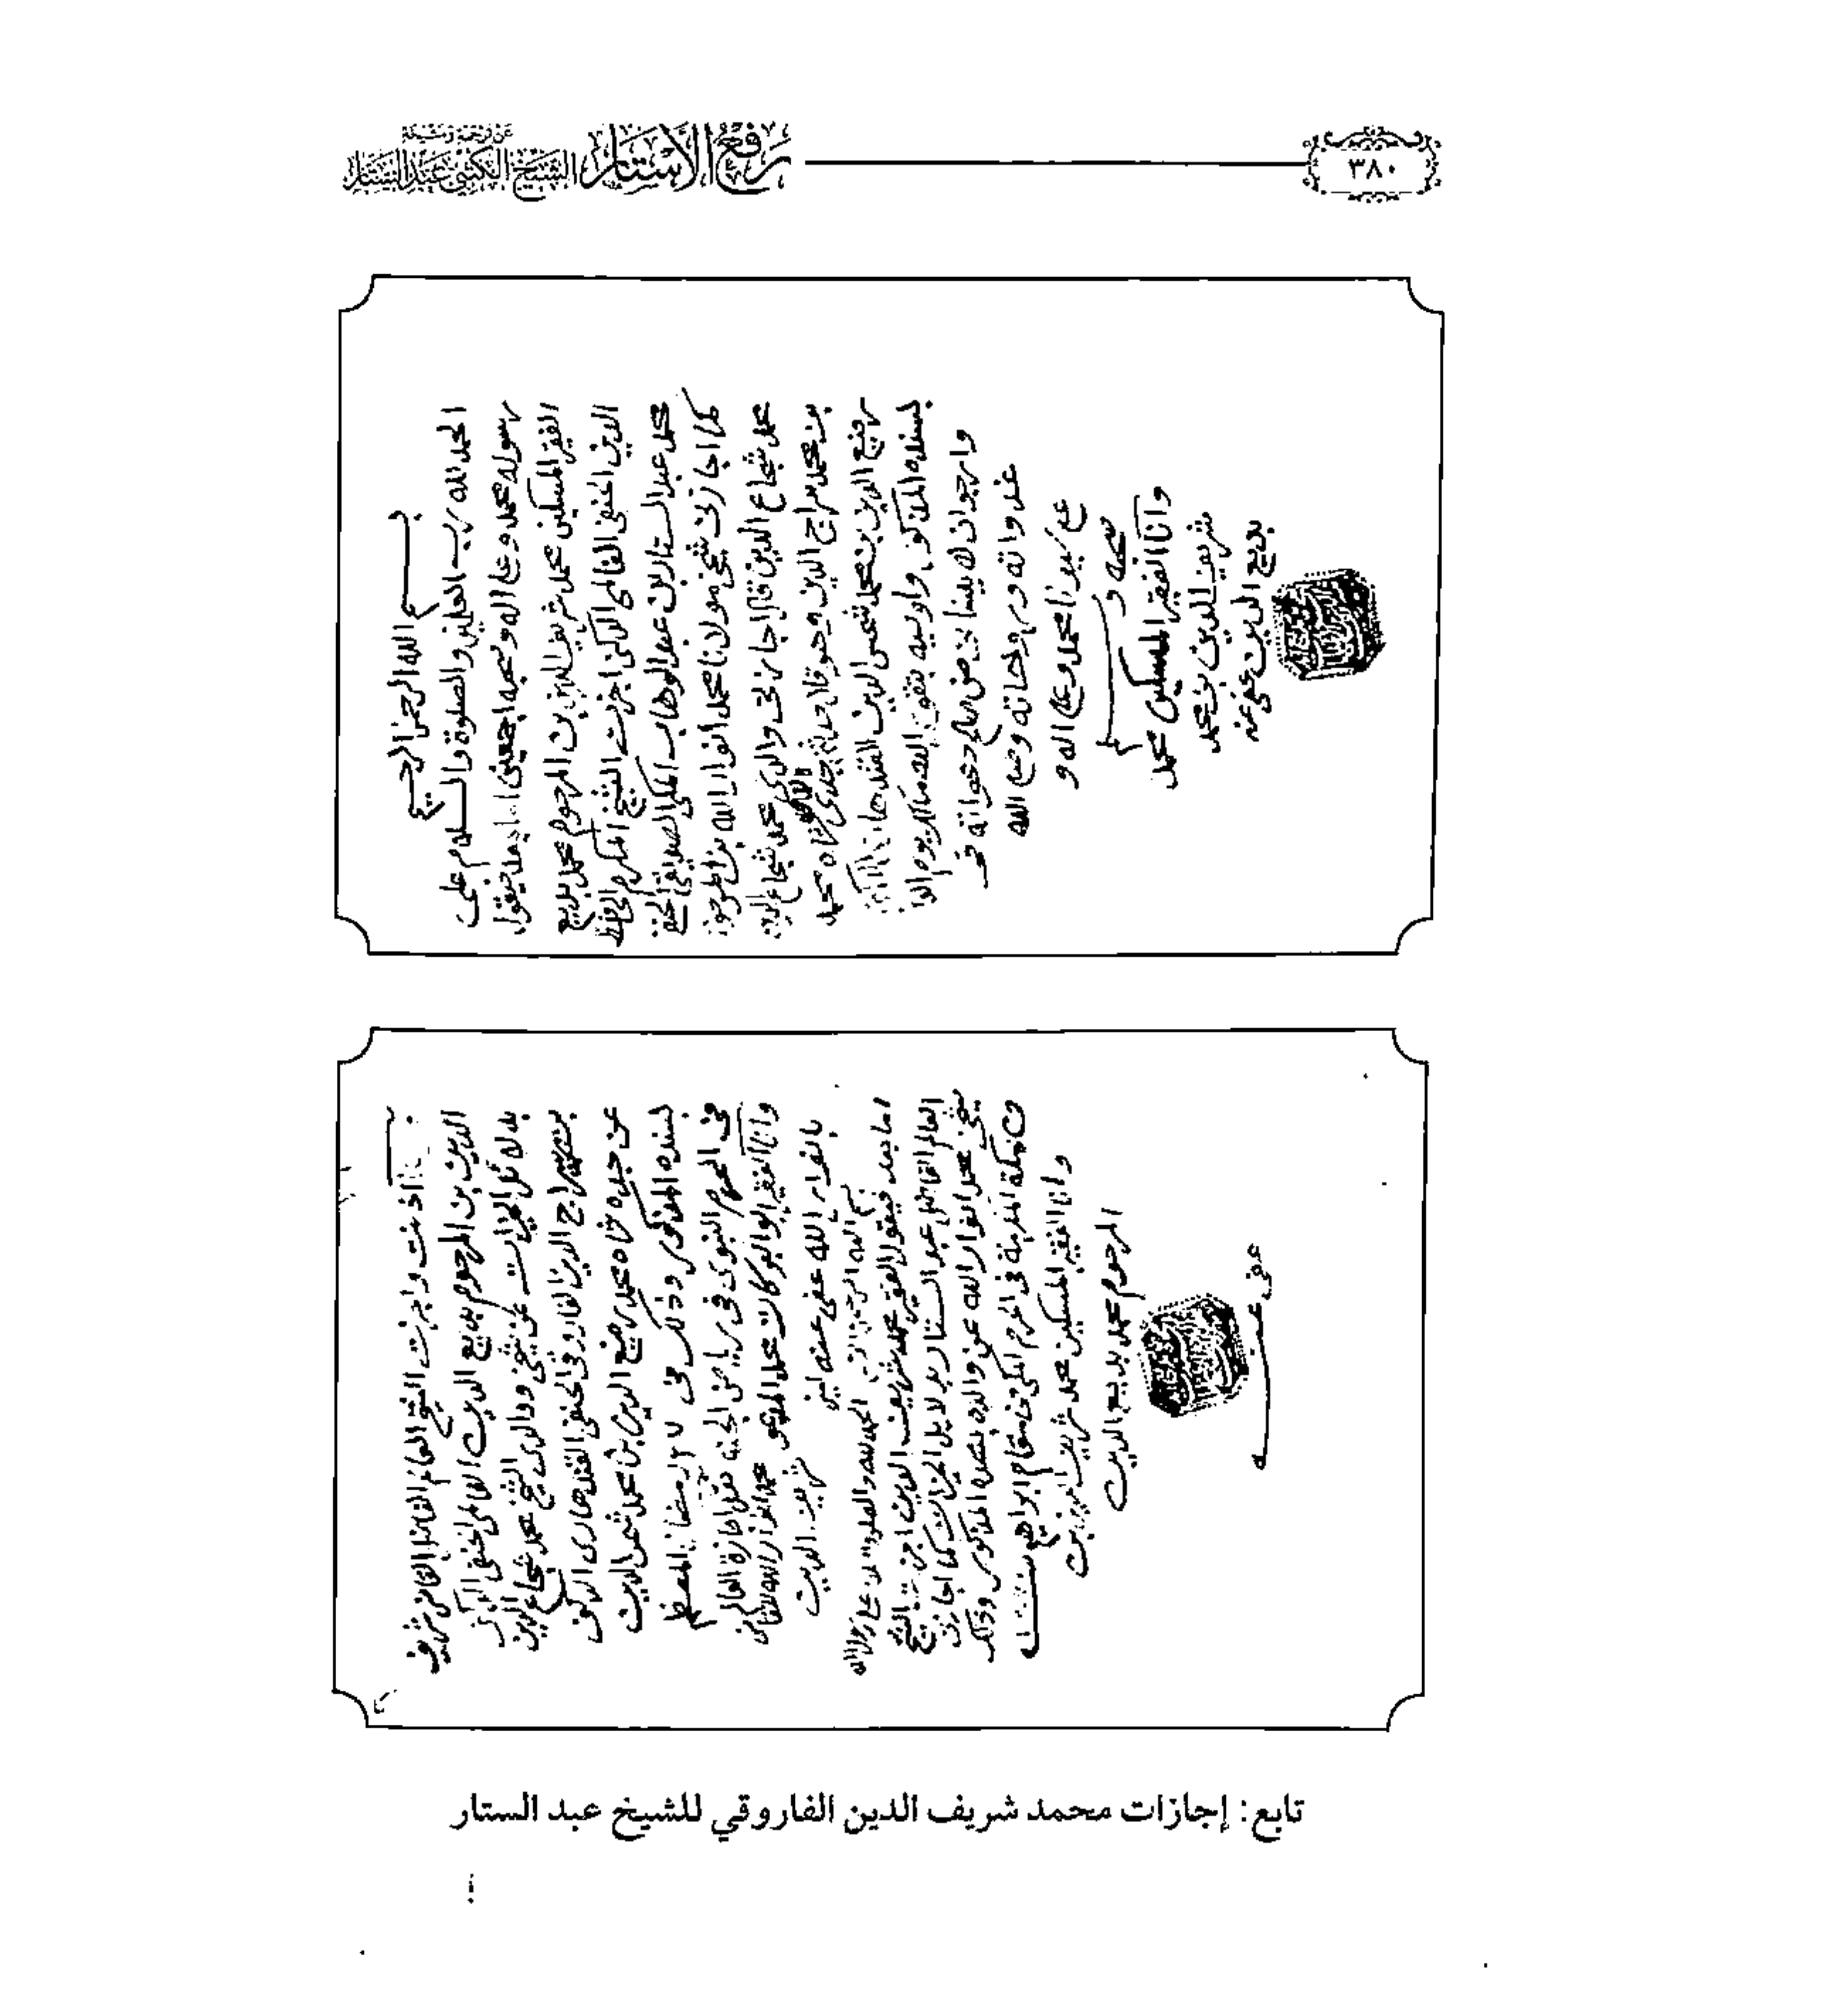 ٣٨٠
رفع الأستار
الشيخ الكتبي عبد الستار
بسم الله الرحمن الرحيم
الحمد لله رب العلمين والصلوة والسلام على
رسوله محمد وعلى اله وصحبه اجمعين اما بعد فيقول
الفقير المسكين محمد شريف الدين بن المرحوم محمد بديع
الدين الحنفي الدكني اجزت الشيخ المكرم
محمد عبد الستار بن عبد الوهاب المكي الصديقي الحنفي
كما اجازني شيخي مولانا محمد انوار الله بن المرحوم
محمد شجاع الدين قال اجازني والدي محمد شجاع الدين
بن محمد سراج الدين وهو قال جدي شاه محمد
رفيع الدين بن محمد شمس الدين القندهاري
بسنده المذكور واوصيه بتقوى الله
وارجوان لا ينسانا من صالح دعواته في
خلواته وجلواته وصلى الله
على سيدنا محمد وعلى اله و
صحبه و
وانا الفقير المسكين محمد
شريف الدين بن محمد
بديع الدين عفي عنه
اذنت واجزت الشيخ العالم الفاضل شريف
الدين بن المرحوم بديع الدين الحنفي
بدلائل الخيرات عن شيخي ووالدي الشيخ محمد شجاع الدين
بن سراج الدين الفاروقي الحنفي القندهاري الدكني
عن جده شاه محمد رفيع الدين بن محمد شمس الدين
بسنده المذكور وذلك في ٢٧ رمضان المعظم
في الحرم النبوي في رياض الجنة
وانا الفقير ابو البركات محمد المدعو
بانوار الله عفي عنه امين
شريف الدين
اما بعد فيقول الفقير محمد شريف الدين اجزت الشيخ
العالم الفاضل عبد الستار بدلائل الخيرات كما اجازني
شيخي محمد انوار الله عن والده بسنده المذكور وذلك
في مكة المكرمة في الحرم المكي مقام ابراهيم
وانا الفقير المسكين محمد شريف الدين بن
المرحوم محمد بديع الدين
عفي عنه
تابع: إجازات محمد شريف الدين الفاروقي للشيخ عبد الستار